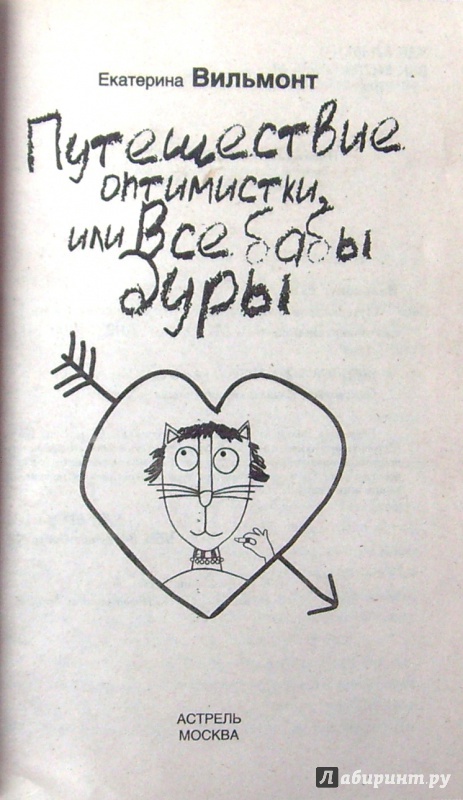 Екатерина Вильмонт
Путешествие
оптимистки,
или Все бабы
дуры
АСТРЕЛЬ
МОСКВА
Лабиринт.ру